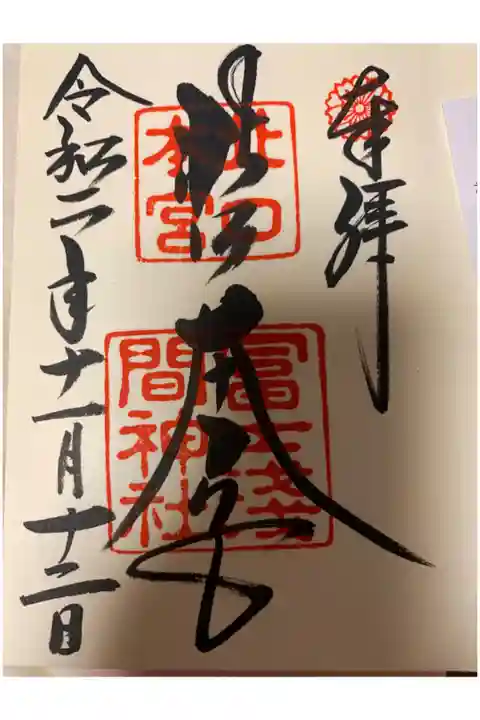 奉拝
北口本宮
北口
本宮
冨士淺
間神社
令和二年十一月十二日